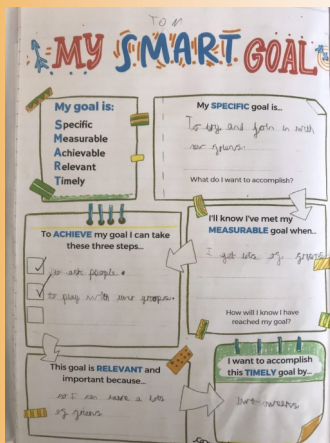 TOM
MY SMART GOAL
My goal is:
Specific
Measurable
Achievable
Relevant
Timely
My SPECIFIC goal is...
To try and join in with
new friens.
What do I want to accomplish?
To ACHIEVE my goal I can take
these three steps...
to ask people.
to play with new groops.
I'll know I've met my
MEASURABLE goal when...
I get lots of friens
How will I know I have
reached my goal?
This goal is RELEVANT and
important because...
so I can have a lots
of friens
I want to accomplish
this TIMELY goal by...
two weeks